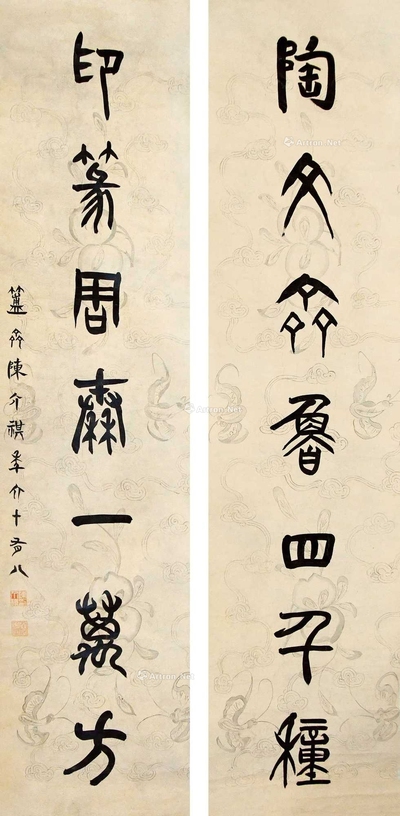 陶文齊魯四千種
印篆周秦一萬方
簠齋陳介祺年六十有八
Artron.Net